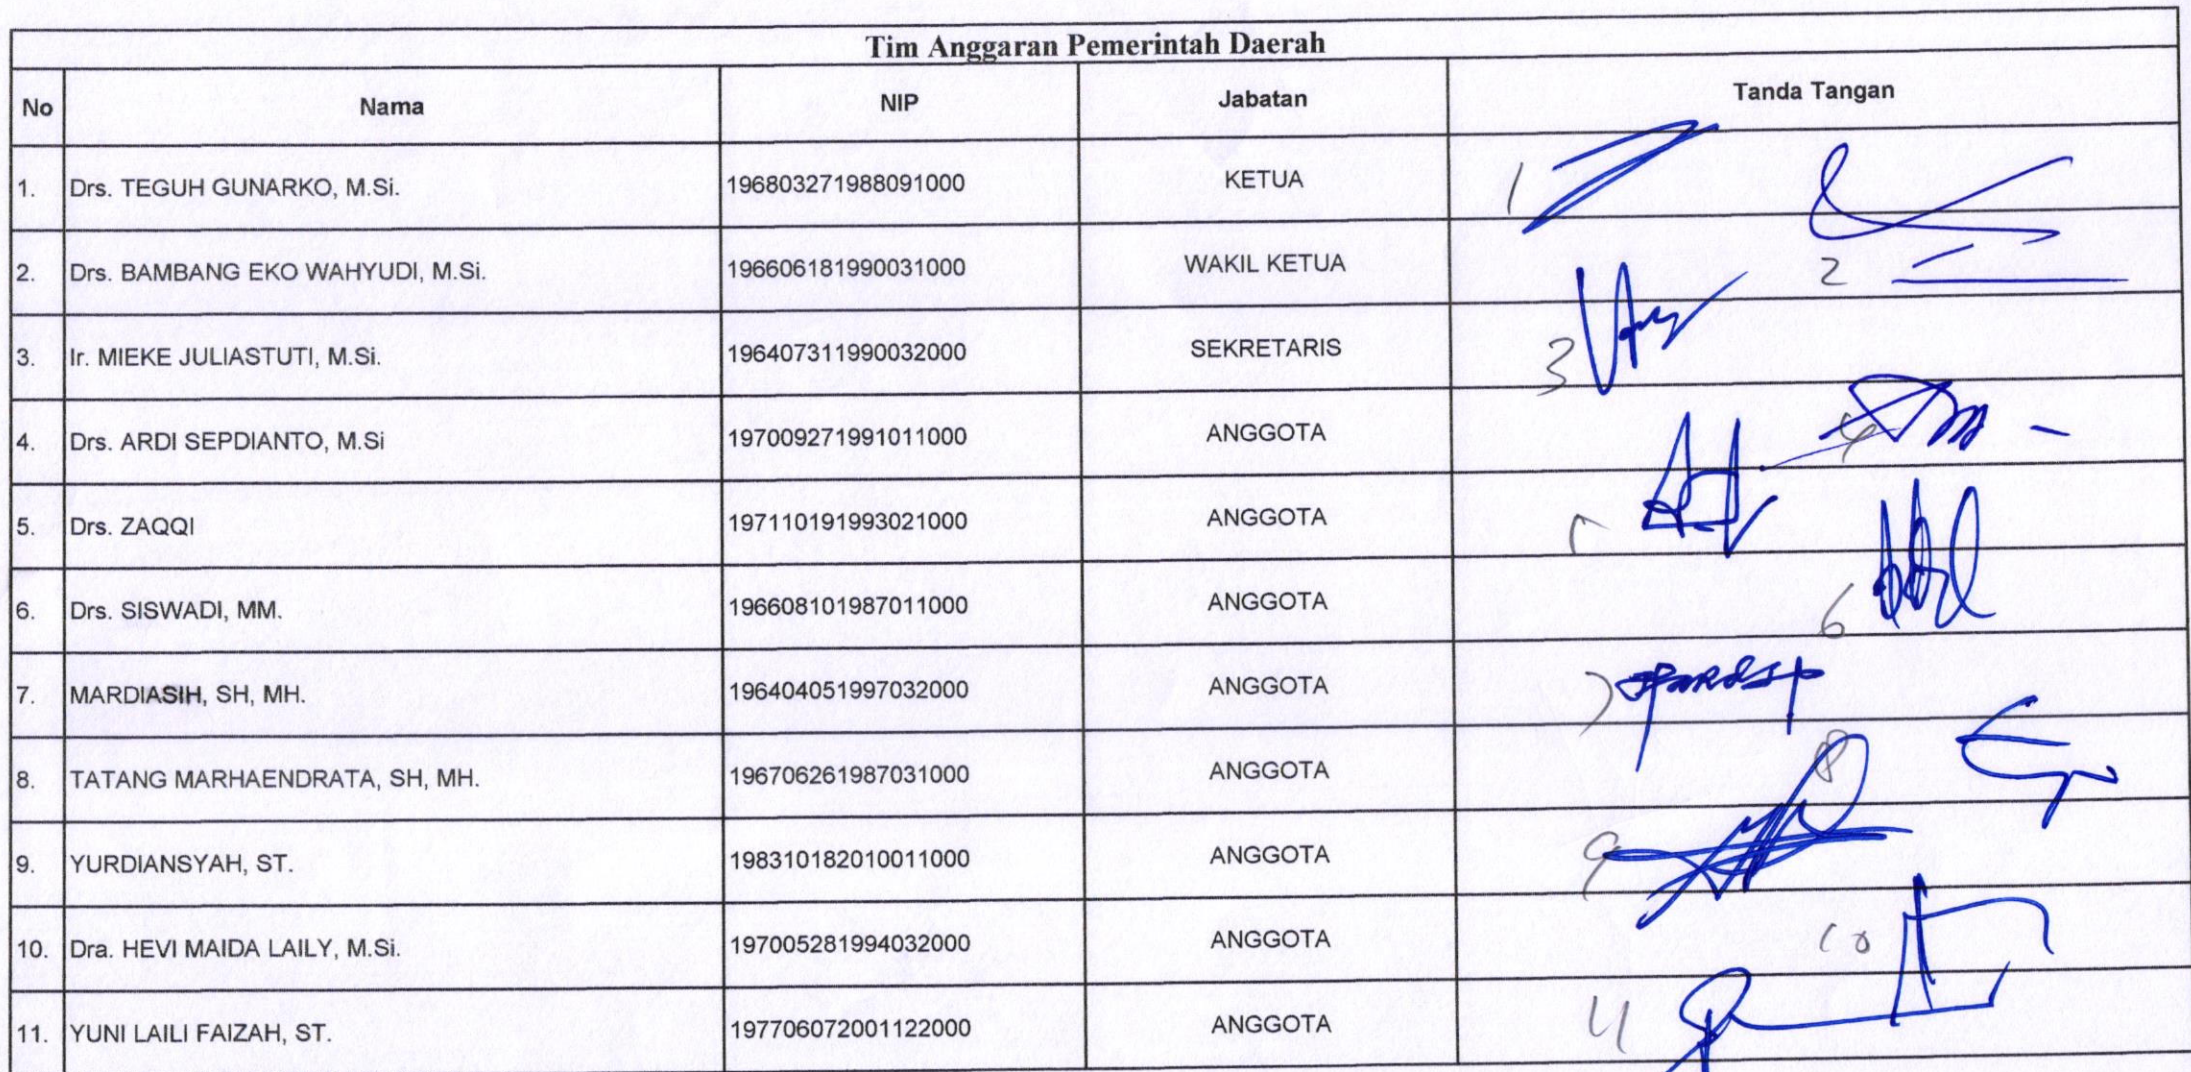 Tim Anggaran Pemerintah Daerah
No Nama NIP Jabatan Tanda Tangan
1. Drs. TEGUH GUNARKO, M.Si. 196803271988091000 KETUA 1
2. Drs. BAMBANG EKO WAHYUDI, M.Si. 196606181990031000 WAKIL KETUA 2
3. Ir. MIEKE JULIASTUTI, M.Si. 196407311990032000 SEKRETARIS 3
4. Drs. ARDI SEPDIANTO, M.Si 197009271991011000 ANGGOTA 4
5. Drs. ZAQQI 197110191993021000 ANGGOTA
6. Drs. SISWADI, MM. 196608101987011000 ANGGOTA 6
7. MARDIASIH, SH, MH. 196404051997032000 ANGGOTA
8. TATANG MARHAENDRATA, SH, MH. 196706261987031000 ANGGOTA 8
9. YURDIANSYAH, ST. 198310182010011000 ANGGOTA 9
10. Dra. HEVI MAIDA LAILY, M.Si. 197005281994032000 ANGGOTA 10
11. YUNI LAILI FAIZAH, ST. 197706072001122000 ANGGOTA 11